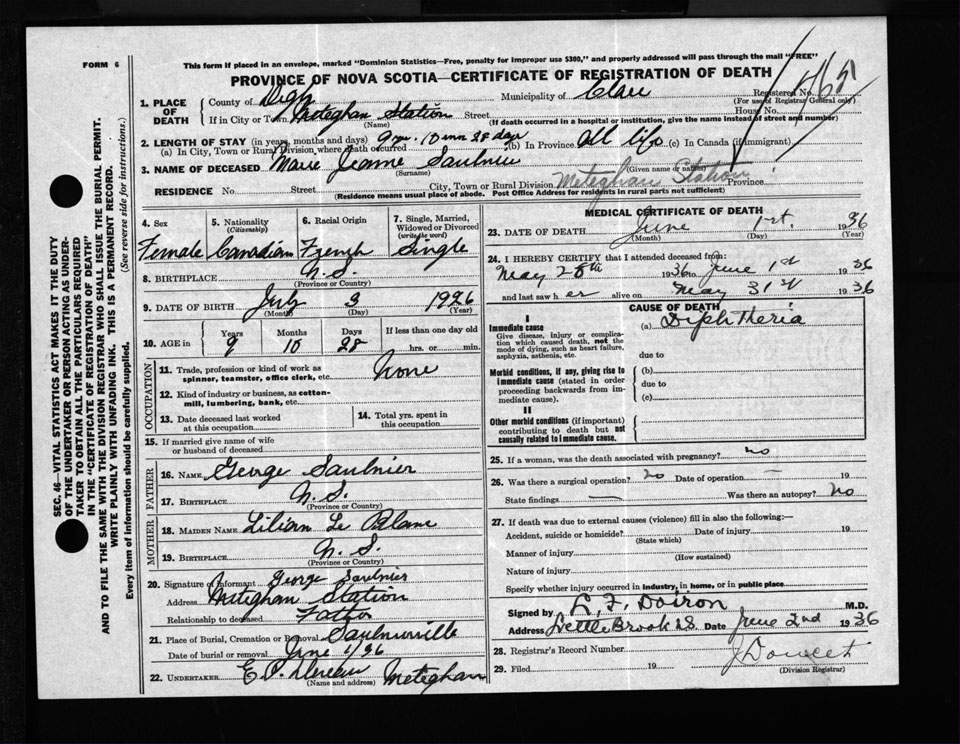 FORM 6
This form if placed in an envelope, marked "Dominion Statistics—Free, penalty for improper use $300," and properly addressed will pass through the mail "FREE"
PROVINCE OF NOVA SCOTIA—CERTIFICATE OF REGISTRATION OF DEATH
Registered No.
(For use of Registrar General only)
1. PLACE OF DEATH
County of Digby Municipality of Clare
If in City or Town Meteghan Station Street House No.
(Name) (If death occurred in a hospital or institution, give the name instead of street and number)
2. LENGTH OF STAY (in years, months and days) 9 yrs. 10 mn 28 days
(a) In City, Town or Rural Division where death occurred (b) In Province All life (c) In Canada (if immigrant)
3. NAME OF DECEASED Marie Jeanne Saulnier
(Surname) (Given name or names)
RESIDENCE No. Street City, Town or Rural Division Meteghan Station Province
(Residence means usual place of abode. Post Office Address for residents in rural parts not sufficient)
4. Sex Female
5. Nationality (Citizenship) Canadian
6. Racial Origin French
7. Single, Married, Widowed or Divorced (write the word) Single
8. BIRTHPLACE N.S.
(Province or Country)
9. DATE OF BIRTH July 3 1926
(Month) (Day) (Year)
10. AGE in Years Months Days If less than one day old
9 10 28 hrs. or min.
OCCUPATION
11. Trade, profession or kind of work as spinner, teamster, office clerk, etc. None
12. Kind of industry or business, as cotton-mill, lumbering, bank, etc.
13. Date deceased last worked at this occupation
14. Total yrs. spent in this occupation
15. If married give name of wife or husband of deceased
FATHER
16. NAME George Saulnier
17. BIRTHPLACE N.S.
(Province or Country)
MOTHER
18. MAIDEN NAME Lilian Le Blanc
19. BIRTHPLACE N.S.
(Province or Country)
20. Signature of Informant George Saulnier
Address Meteghan Station
Relationship to deceased Father
21. Place of Burial, Cremation or Removal Saulnierville
Date of burial or removal June 1/36
22. UNDERTAKER Meteghan
(Name and address)
MEDICAL CERTIFICATE OF DEATH
23. DATE OF DEATH June 1st. 1936
(Month) (Day) (Year)
24. I HEREBY CERTIFY that I attended deceased from:
May 28th 1936 to June 1st 1936
and last saw her alive on May 31st 1936
I
Immediate cause
Give disease, injury or complication which caused death, not the mode of dying, such as heart failure, asphyxia, asthenia, etc.
Morbid conditions, if any, giving rise to immediate cause (stated in order proceeding backwards from immediate cause).
II
Other morbid conditions (if important) contributing to death but not causally related to immediate cause.
CAUSE OF DEATH
(a) Diphtheria
due to
(b)
due to
(c)
25. If a woman, was the death associated with pregnancy? no
26. Was there a surgical operation? no Date of operation — 19
State findings — Was there an autopsy? No
27. If death was due to external causes (violence) fill in also the following:—
Accident, suicide or homicide? Date of injury 19
(State which)
Manner of injury
(How sustained)
Nature of injury
Specify whether injury occurred in industry, in home, or in public place
Signed by L. F. Doiron M.D.
Address Little Brook N.S. Date June 2nd 1936
28. Registrar's Record Number
29. Filed 19 J Doucet
(Division Registrar)
SEC. 46—VITAL STATISTICS ACT MAKES IT THE DUTY
OF THE UNDERTAKER OR PERSON ACTING AS UNDER-
TAKER TO OBTAIN ALL THE PARTICULARS REQUIRED
IN THE "CERTIFICATE OF REGISTRATION OF DEATH"
AND TO FILE THE SAME WITH THE DIVISION REGISTRAR WHO SHALL ISSUE THE BURIAL PERMIT.
WRITE PLAINLY WITH UNFADING INK. THIS IS A PERMANENT RECORD.
Every item of information should be carefully supplied. (See reverse side for instructions.)